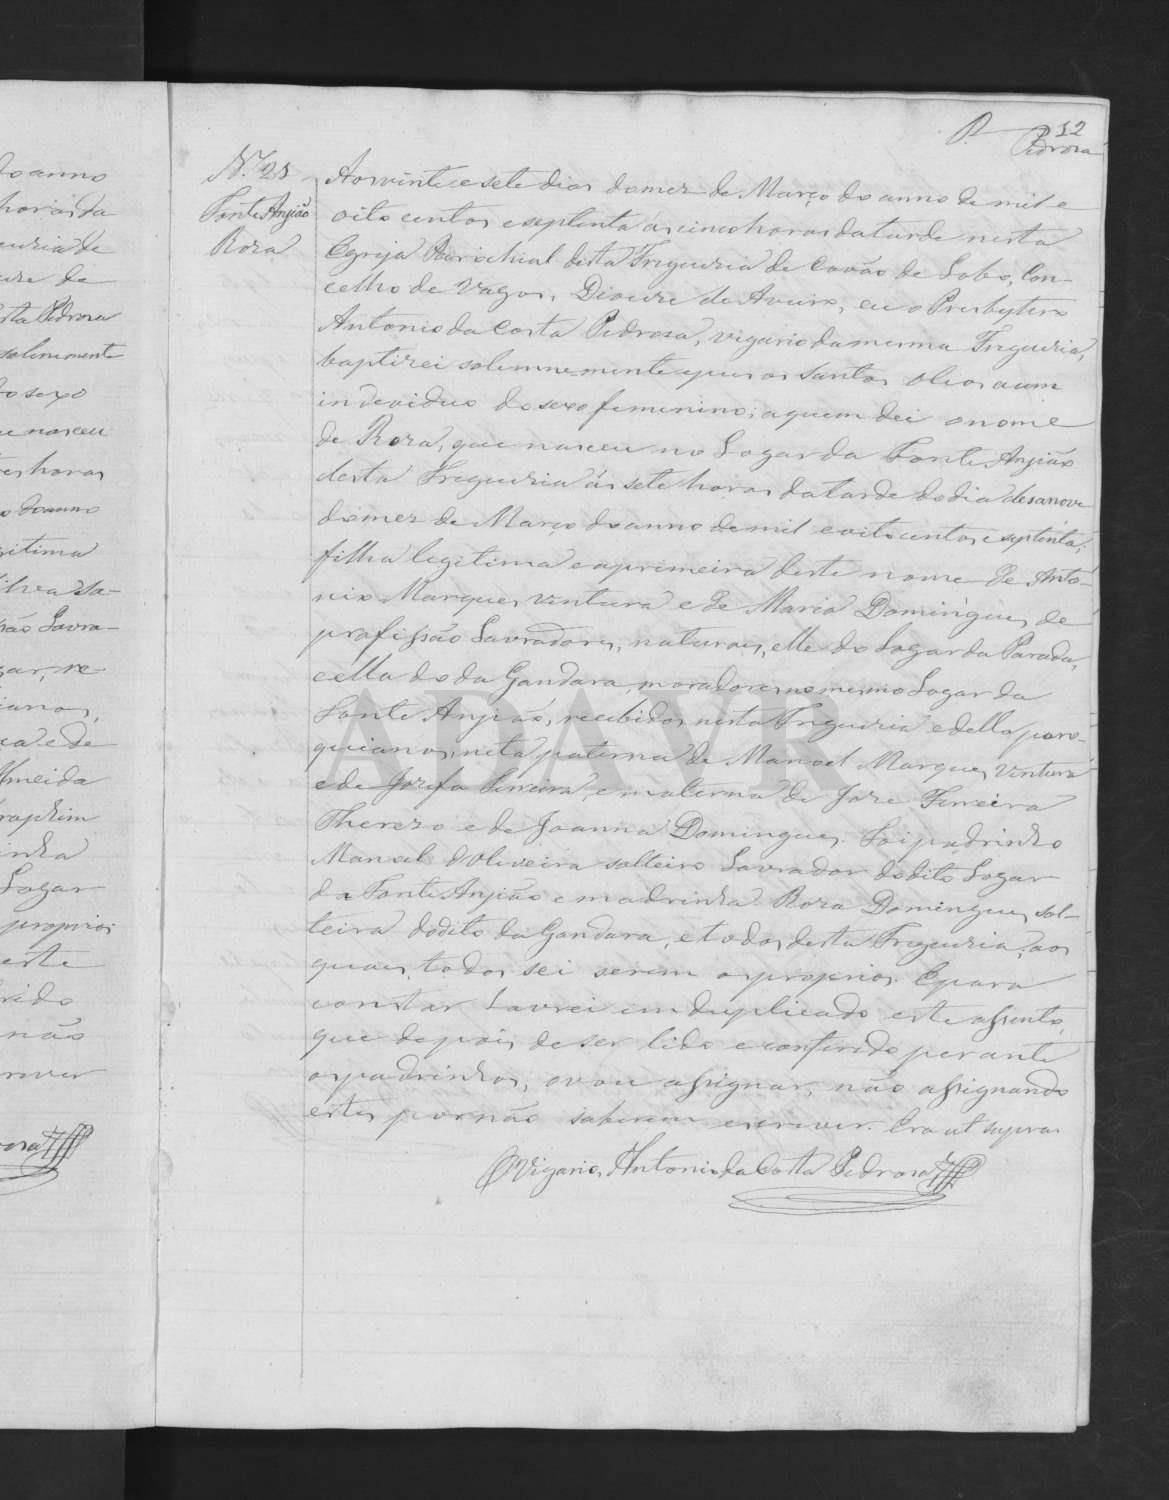 P. 12
Pedrosa
N.º 28
Fonte Anjião
Rosa
Aos vinte e sete dias do mez de Março do anno de mil e
oito centos e septenta ás cinco horas da tarde nesta
Egreja Parochial desta Freguezia de Covão de Lobo, Con-
celho de Vagos, Diocese de Aveiro, eu o Presbytero
Antonio da Costa Pedrosa, vigario da mesma Freguezia,
baptizei solemnemente e puz os Santos Oleos a um
individuo do sexo femenino; a quem dei o nome
de Roza, que nasceu no Logar da Fonte Anjião
desta Freguezia ás sete horas da tarde do dia desanove
do mez de Março do anno de mil e oito centos e septenta;
filha legitima e a primeira deste nome de Anto-
nio Marques Ventura e de Maria Domingues, de
profissão Lavradores, naturaes, elle do Logar da Parada,
e ella do da Gandara, moradores no mesmo Logar da
Fonte Anjião, recebidos nesta Freguezia e della paro-
quianos, neta paterna de Manoel Marques Ventura
e de Jozefa Ferreira, e materna de Joze Ferreira
Therezo e de Joanna Domingues. Foi padrinho
Manoel d'Oliveira solteiro Lavrador do dito Logar
da Fonte Anjião e madrinha Roza Domingues, sol-
teira do dito da Gandara, e todos desta Freguezia, aos
quaes, todos sei serem os proprios. E para
constar Lavrei em duplicado este assento,
que depois de ser lido e conferido perante
os padrinhos, o vou assignar, não assignando
estes por não saberem escrever. Era ut supra.
O Vigario, Antonio da Costa Pedrosa
ADAVR
do anno
horas da
guezia de
cese de
sta Pedrosa
solemnemente
do sexo
ue nasceu
tres horas
o do anno
gitima
Silva
são Lavra-
gar, re-
ianos,
ca e de
Almeida
inha
Logar
proprios
este
rido
não
rever
rosa